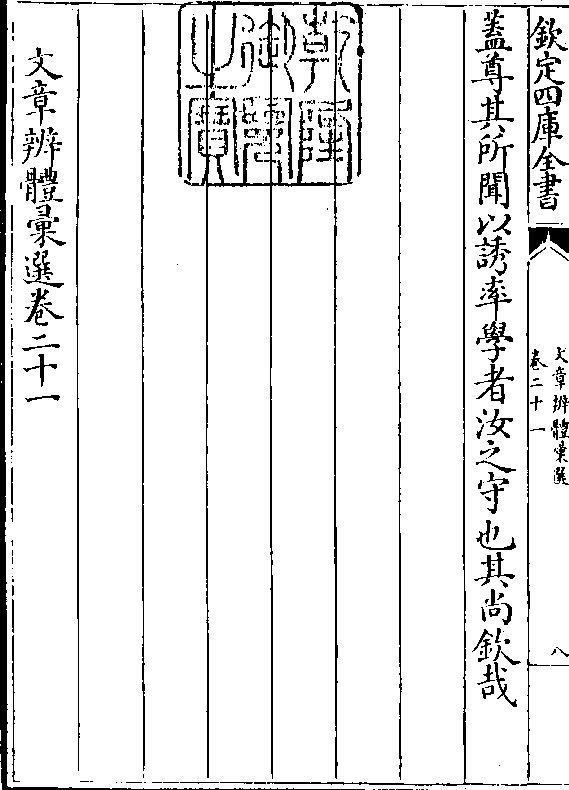 欽定四庫全書
文章辨體彙選
卷二十一
八
蓋尊其所聞以誘率學者汝之守也其尚欽哉
乾隆御覽之寶
文章辨體彙選卷二十一